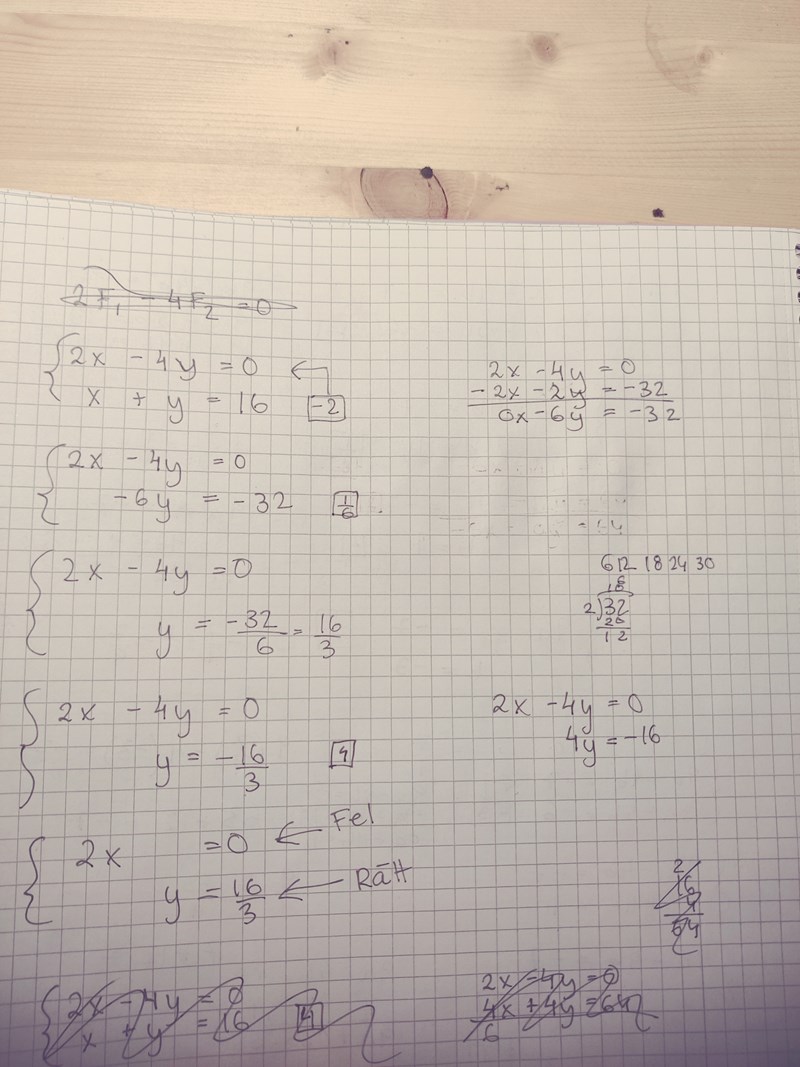 2F₁ - 4F₂ = 0
2x - 4y = 0
x + y = 16 -2
2x - 4y = 0
-2x - 2y = -32
0x - 6y = -32
2x - 4y = 0
-6y = -32 1/6
2x - 4y = 0
y = -32/6 = 16/3
6 12 18 24 30
2)32
12
2x - 4y = 0
y = -16/3 4
2x - 4y = 0
4y = -16
2x = 0 ← Fel
y = 16/3 ← Rätt
2
16
4
64
2x - 4y = 0
x + y = 16 4
2x - 4y = 0
4x + 4y = 64
6